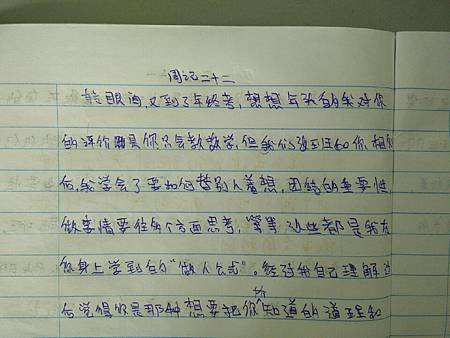 周记二十二
眨眼间，又到了年终考，想想年头的我对你
的评价就是你只会教数学，但我们张班和你相处
后，我学会了要如何替别人着想，团结的重要性，
做事情要往多个方面思考，等等 这些都是我在
你身上学到的"做人公式"。经过我自己理解过
后觉得你是那种想要把你所知道的道理和